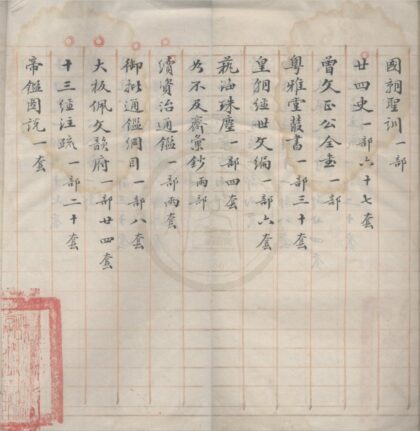 國朝聖訓一部
廿四史一部六十七套
曾文正公全書一部
粵雅堂叢書一部三十套
皇朝經世文編一部六套
藝海珠塵一部四套
知不足齋叢鈔兩部
續資治通鑑一部兩套
御批通鑑綱目一部八套
大板佩文韻府一部廿四套
十三經注疏一部二十套
帝鑑圖說一套